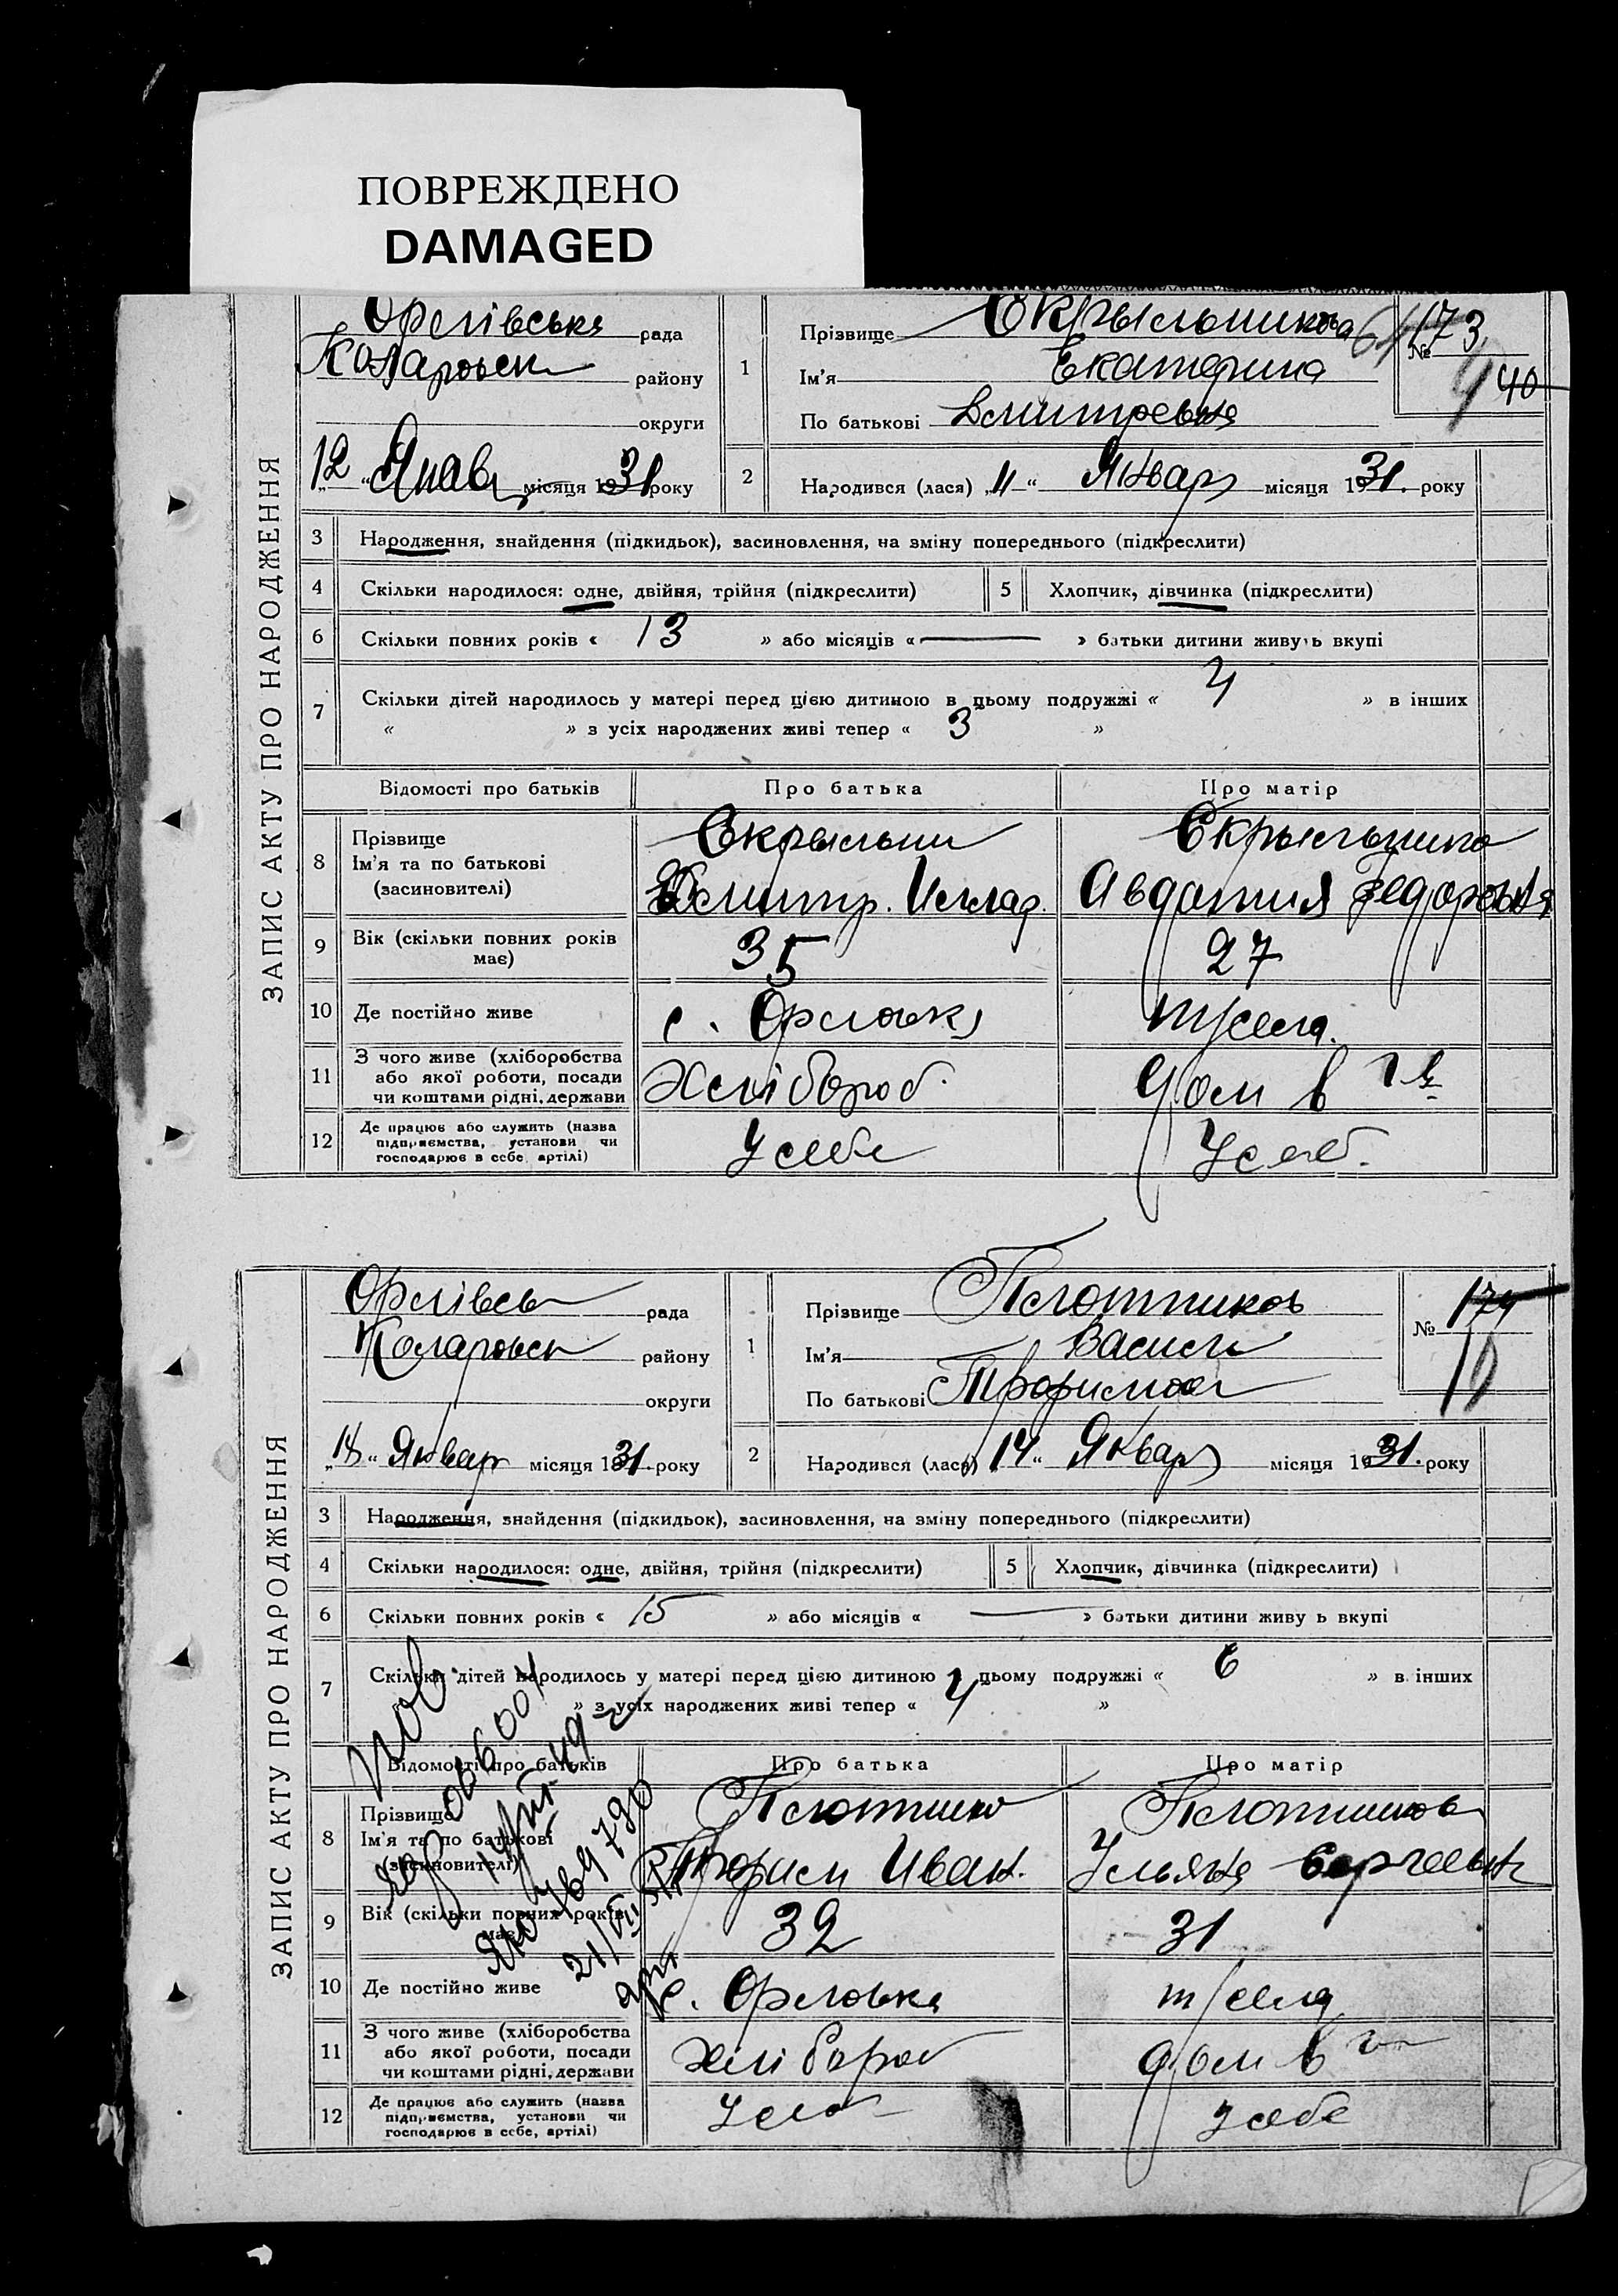 ПОВРЕЖДЕНО
DAMAGED
ЗАПИС АКТУ ПРО НАРОДЖЕННЯ
Орлівська рада
Коларовськ району
округи
12 місяця 1931 року
1 Прізвище Скрыльникова
Ім'я Екатерина
По батькові Дмитревна
№ 173
40
2 Народився (лася) „11“ Январ місяця 1931. року
3 Народження, знайдення (підкидьок), засиновлення, на зміну попереднього (підкреслити)
4 Скільки народилося: одне, двійня, трійня (підкреслити) 5 Хлопчик, дівчинка (підкреслити)
6 Скільки повних років « 13 » або місяців « — » батьки дитини живуть вкупі
7 Скільки дітей народилось у матері перед цією дитиною в цьому подружжі « 4 » в інших
« » з усіх народжених живі тепер « 3 »
Відомості про батьків Про батька Про матір
8 Прізвище
Ім'я та по батькові
(засиновителі)
Дмитр.
Авдотия Федоровна
9 Вік (скільки повних років має) 35 27
10 Де постійно живе с. Орловка
11 З чого живе (хліборобства або якої роботи, посади чи коштами рідні, держави Хлібороб. Дом в
12 Де працює або служить (назва підприємства, установи чи господарює в себе, артілі) У себе У себ.
ЗАПИС АКТУ ПРО НАРОДЖЕННЯ
Орлівськ рада
Коларовск району
округи
„18“ Январ місяця 1931. року
1 Прізвище Плотников
Ім'я Васили
По батькові Трофимов
№ 174
10
2 Народився (лася) „14“ Январ місяця 1931. року
3 Народження, знайдення (підкидьок), засиновлення, на зміну попереднього (підкреслити)
4 Скільки народилося: одне, двійня, трійня (підкреслити) 5 Хлопчик, дівчинка (підкреслити)
6 Скільки повних років « 15 » або місяців « — » батьки дитини живуть вкупі
7 Скільки дітей народилось у матері перед цією дитиною в цьому подружжі « 6 » в інших
» з усіх народжених живі тепер « 4 »
Відомості про батьків Про батька Про матір
8 Прізвище
Ім'я та по батькові
(засиновителі)
Плотникова
Трофим Иван. Ульяна Сергеевн
9 Вік (скільки повних років має) 32 31
10 Де постійно живе с. Орловка
11 З чого живе (хліборобства або якої роботи, посади чи коштами рідні, держави хлібороб дом в
12 Де працює або служить (назва підприємства, установи чи господарює в себе, артілі) У себе